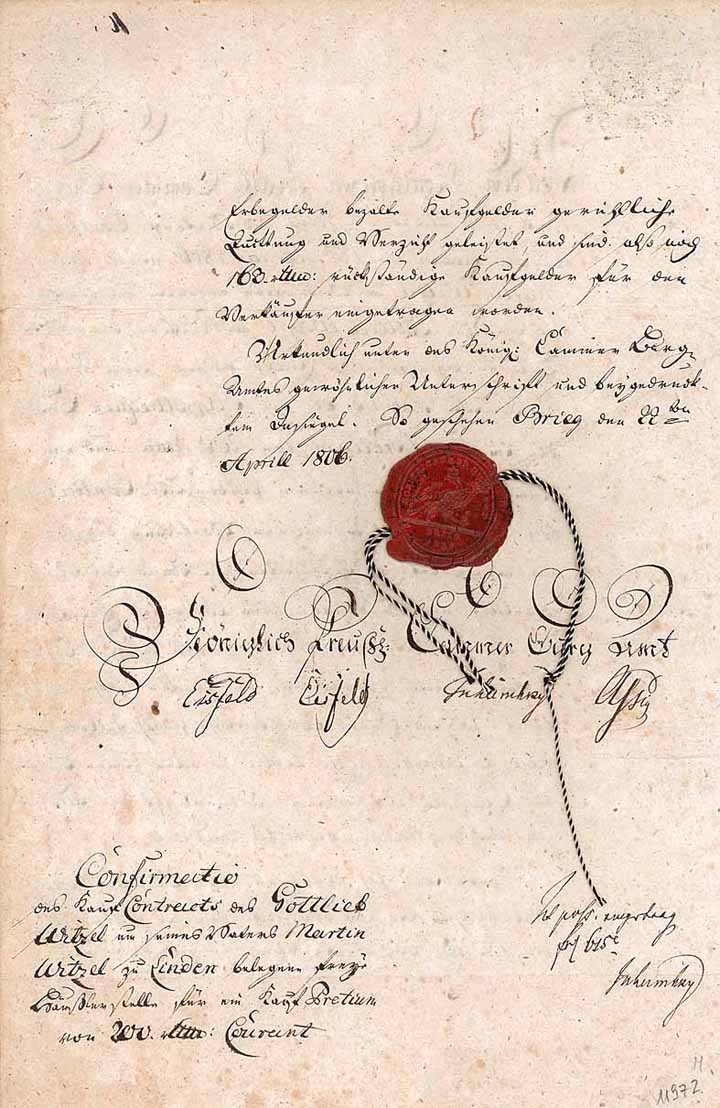 Erbegelder bezalte Kaufgelder gerichtliche
Quittung und Verzicht geleistet, und sind also noch
163. rthlr: rückständige Kaufgelder für den
Verkäufer eingetragen worden.
Urkundlich unter des Königl: Cammer Burg-
Amtes gewöhnlicher Unterschrift und beygedruck-
tem Insiegel. So geschehen Brieg den 22ten
Aprill 1806.
Königlich Preuß: Cammer Burg Amt
Eisfeld
Confirmatio
des Kauf Contracts des Gottlieb
Witzel um seines Vaters Martin
Witzel zu Linden belegene freye
Häußlerstelle für ein Kauf Pretium
von 200. rthlr: Courant
Ist poss. eingetrag
11972